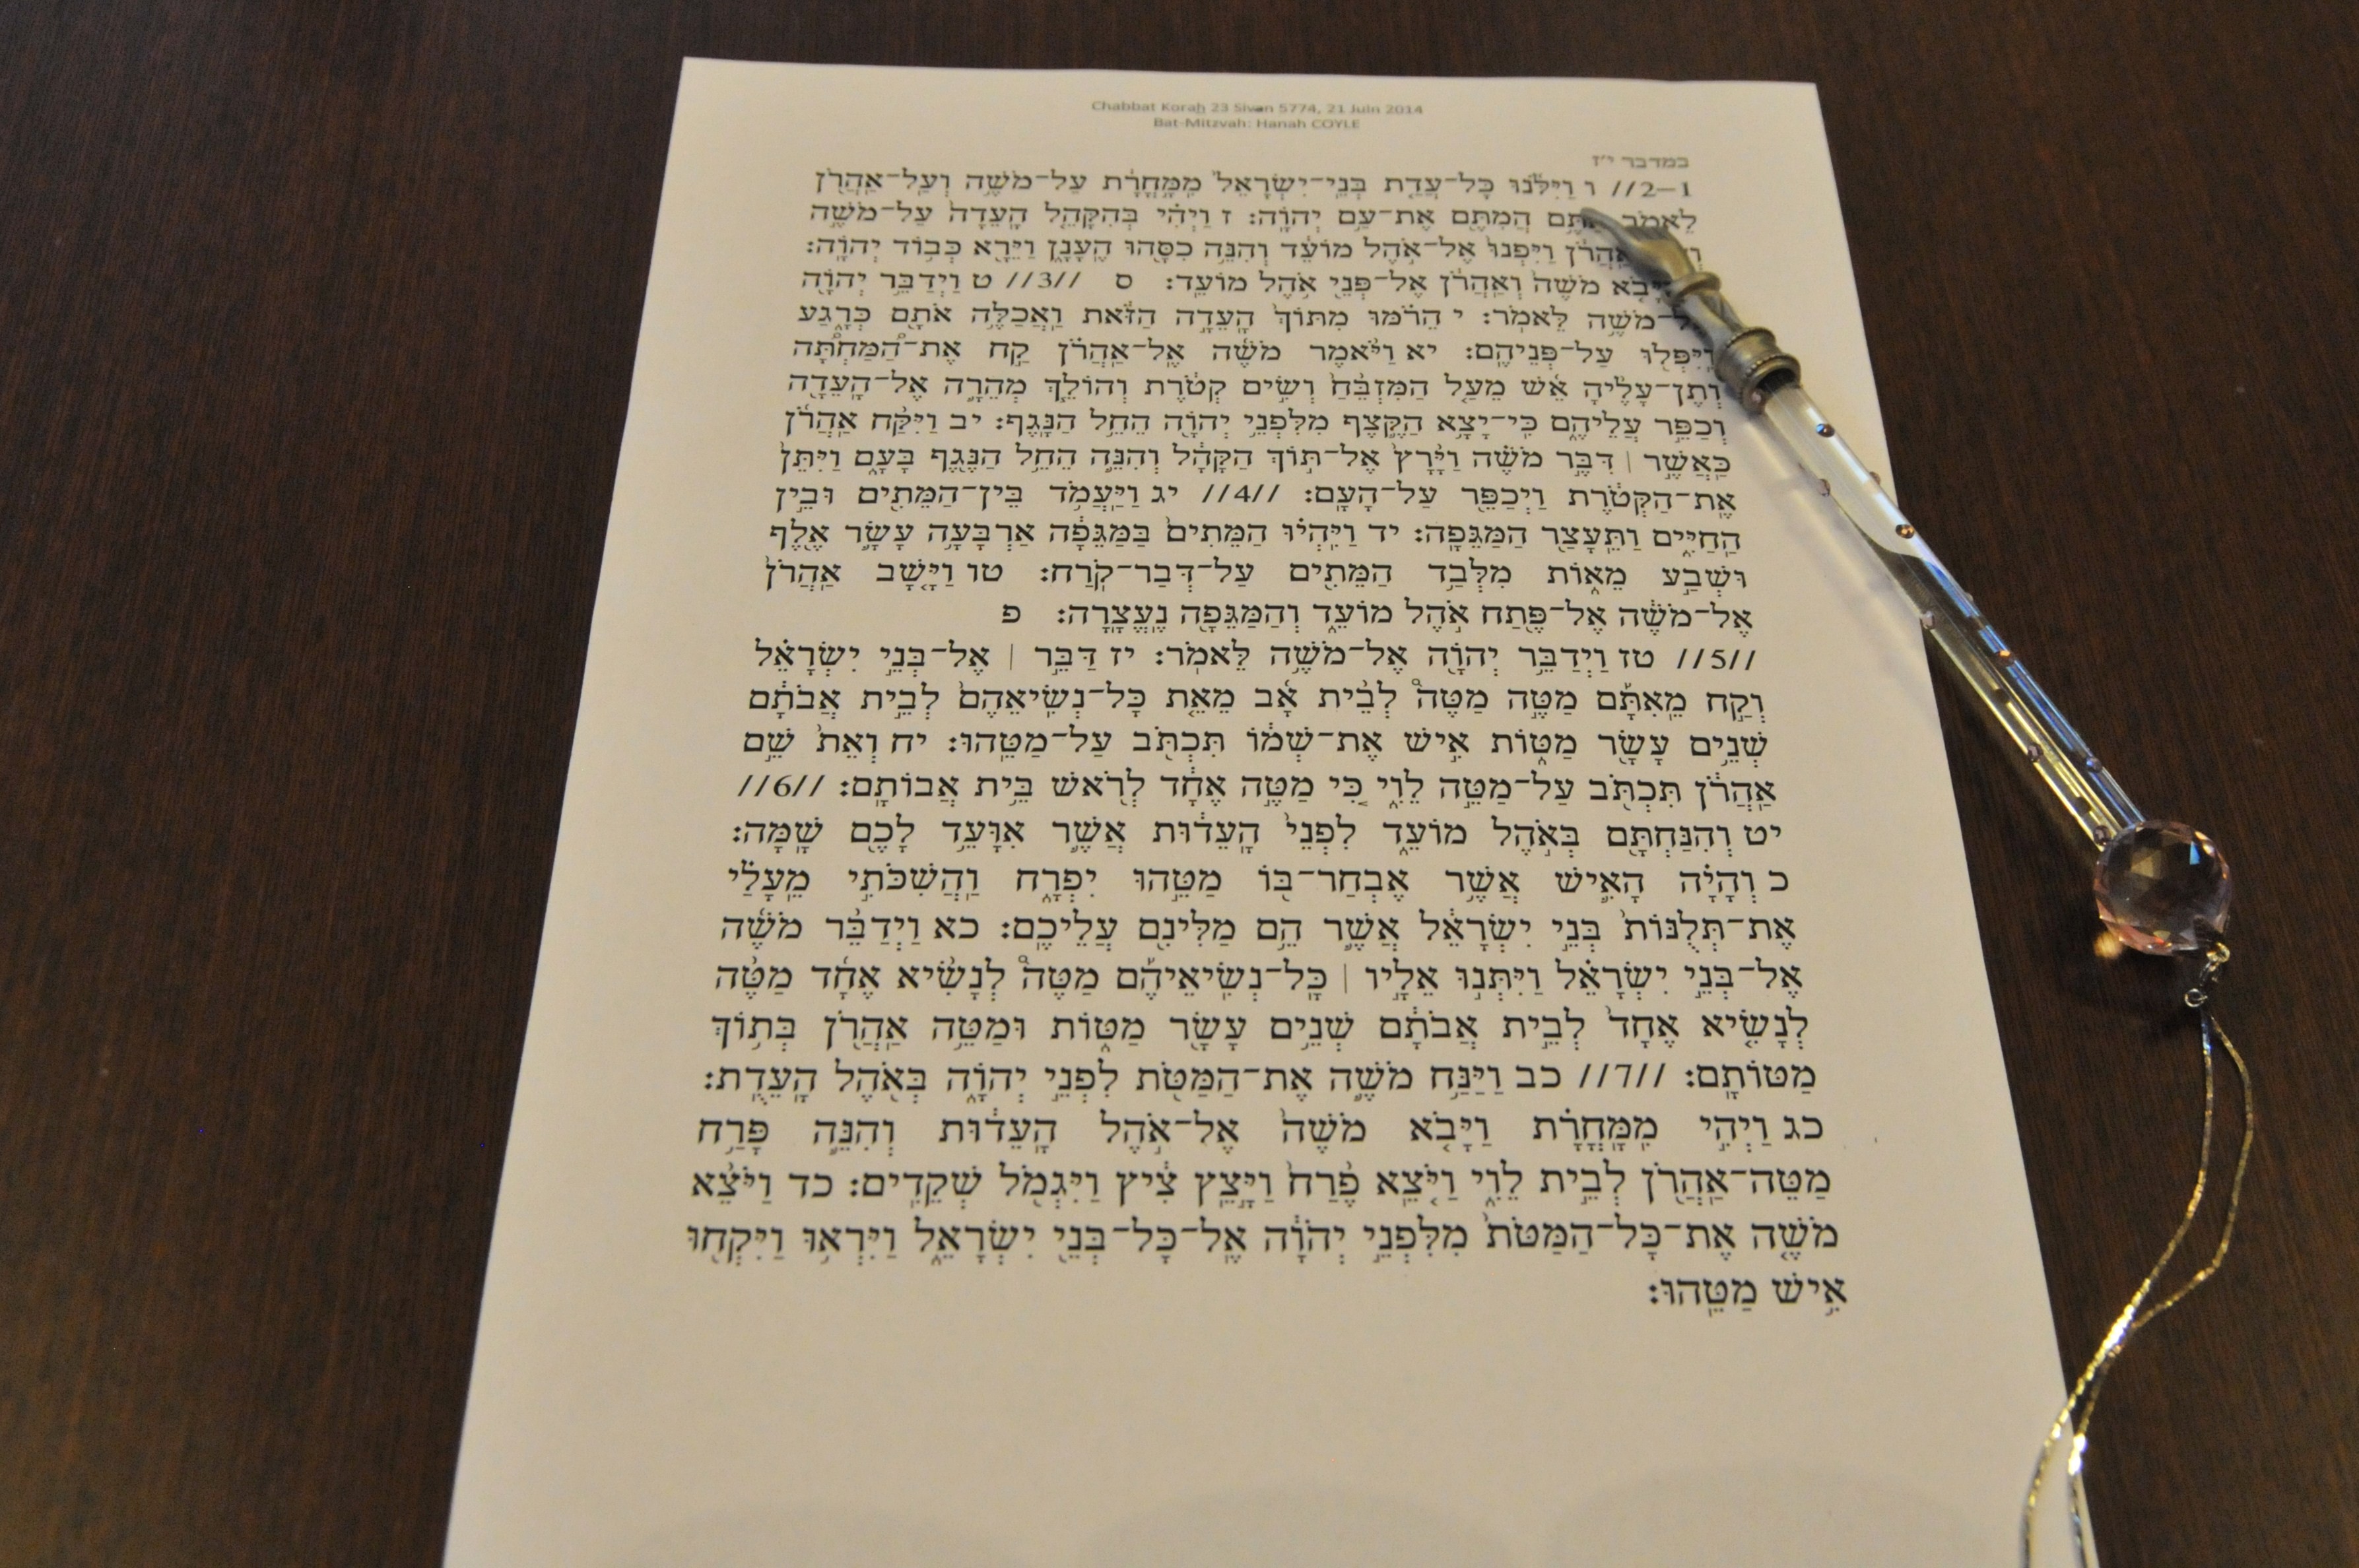 Chabbat Koraḥ 23 Sivan 5774, 21 Juin 2014
Bat-Mitzvah: Hanah COYLE
במדבר י״ז
1–2// ו וַיִּלֹּ֜נוּ כׇּל־עֲדַ֤ת בְּנֵֽי־יִשְׂרָאֵל֙ מִֽמׇּחֳרָ֔ת עַל־מֹשֶׁ֥ה וְעַֽל־אַהֲרֹ֖ן
לֵאמֹ֑ר הֲמִתֶּ֖ם אֶת־עַ֥ם יְהֹוָֽה׃ ז וַיְהִ֗י בְּהִקָּהֵ֤ל הָֽעֵדָה֙ עַל־מֹשֶׁ֣ה
אַהֲרֹ֔ן וַיִּפְנוּ֙ אֶל־אֹ֣הֶל מוֹעֵ֔ד וְהִנֵּ֥ה כִסָּ֖הוּ הֶעָנָ֑ן וַיֵּרָ֖א כְּב֥וֹד יְהֹוָֽה׃
מֹשֶׁה֙ וְאַהֲרֹ֔ן אֶל־פְּנֵ֖י אֹ֥הֶל מוֹעֵֽד׃ ס //3// ט וַיְדַבֵּ֥ר יְהֹוָ֖ה
מֹשֶׁ֥ה לֵּאמֹֽר׃ י הֵרֹ֗מּוּ מִתּוֹךְ֙ הָעֵדָ֣ה הַזֹּ֔את וַאֲכַלֶּ֥ה אֹתָ֖ם כְּרָ֑גַע
וַֽיִּפְּל֖וּ עַל־פְּנֵיהֶֽם׃ יא וַיֹּ֨אמֶר מֹשֶׁ֜ה אֶֽל־אַהֲרֹ֗ן קַ֣ח אֶת־הַ֠מַּחְתָּ֠ה
וְתֶן־עָלֶ֨יהָ אֵ֜שׁ מֵעַ֤ל הַמִּזְבֵּ֙חַ֙ וְשִׂ֣ים קְטֹ֔רֶת וְהוֹלֵ֧ךְ מְהֵרָ֛ה אֶל־הָעֵדָ֖ה
וְכַפֵּ֣ר עֲלֵיהֶ֑ם כִּֽי־יָצָ֥א הַקֶּ֛צֶף מִלִּפְנֵ֥י יְהֹוָ֖ה הֵחֵ֥ל הַנָּֽגֶף׃ יב וַיִּקַּ֨ח אַהֲרֹ֜ן
כַּאֲשֶׁ֣ר | דִּבֶּ֣ר מֹשֶׁ֗ה וַיָּ֙רׇץ֙ אֶל־תּ֣וֹךְ הַקָּהָ֔ל וְהִנֵּ֛ה הֵחֵ֥ל הַנֶּ֖גֶף בָּעָ֑ם וַיִּתֵּן֙
אֶֽת־הַקְּטֹ֔רֶת וַיְכַפֵּ֖ר עַל־הָעָֽם׃ //4// יג וַיַּעֲמֹ֥ד בֵּֽין־הַמֵּתִ֖ים וּבֵ֣ין
הַֽחַיִּ֑ים וַתֵּעָצַ֖ר הַמַּגֵּפָֽה׃ יד וַיִּהְי֗וּ הַמֵּתִים֙ בַּמַּגֵּפָ֔ה אַרְבָּעָ֥ה עָשָׂ֛ר אֶ֖לֶף
וּשְׁבַ֣ע מֵא֑וֹת מִלְּבַ֥ד הַמֵּתִ֖ים עַל־דְּבַר־קֹֽרַח׃ טו וַיָּ֤שׇׁב אַהֲרֹן֙
אֶל־מֹשֶׁ֔ה אֶל־פֶּ֖תַח אֹ֣הֶל מוֹעֵ֑ד וְהַמַּגֵּפָ֖ה נֶעֱצָֽרָה׃ פ
//5// טז וַיְדַבֵּ֥ר יְהֹוָ֖ה אֶל־מֹשֶׁ֥ה לֵּאמֹֽר׃ יז דַּבֵּ֣ר | אֶל־בְּנֵ֣י יִשְׂרָאֵ֗ל
וְקַ֣ח מֵֽאִתָּ֡ם מַטֶּ֣ה מַטֶּה֩ לְבֵ֨ית אָ֜ב מֵאֵ֤ת כׇּל־נְשִֽׂיאֵהֶם֙ לְבֵ֣ית אֲבֹתָ֔ם
שְׁנֵ֥ים עָשָׂ֖ר מַטּ֑וֹת אִ֣ישׁ אֶת־שְׁמ֔וֹ תִּכְתֹּ֖ב עַל־מַטֵּֽהוּ׃ יח וְאֵת֙ שֵׁ֣ם
אַהֲרֹ֔ן תִּכְתֹּ֖ב עַל־מַטֵּ֣ה לֵוִ֑י כִּ֚י מַטֶּ֣ה אֶחָ֔ד לְרֹ֖אשׁ בֵּ֥ית אֲבוֹתָֽם׃ //6//
יט וְהִנַּחְתָּ֖ם בְּאֹ֣הֶל מוֹעֵ֑ד לִפְנֵי֙ הָֽעֵד֔וּת אֲשֶׁ֛ר אִוָּעֵ֥ד לָכֶ֖ם שָֽׁמָּה׃
כ וְהָיָ֗ה הָאִ֛ישׁ אֲשֶׁ֥ר אֶבְחַר־בּ֖וֹ מַטֵּ֣הוּ יִפְרָ֑ח וַהֲשִׁכֹּתִ֣י מֵֽעָלַ֗י
אֶת־תְּלֻנּוֹת֙ בְּנֵ֣י יִשְׂרָאֵ֔ל אֲשֶׁ֛ר הֵ֥ם מַלִּינִ֖ם עֲלֵיכֶֽם׃ כא וַיְדַבֵּ֨ר מֹשֶׁ֜ה
אֶל־בְּנֵ֣י יִשְׂרָאֵ֗ל וַיִּתְּנ֣וּ אֵלָ֣יו | כׇּֽל־נְשִׂיאֵיהֶ֡ם מַטֶּה֩ לְנָשִׂ֨יא אֶחָ֜ד מַטֶּ֨ה
לְנָשִׂ֤יא אֶחָד֙ לְבֵ֣ית אֲבֹתָ֔ם שְׁנֵ֥ים עָשָׂ֖ר מַטּ֑וֹת וּמַטֵּ֥ה אַהֲרֹ֖ן בְּת֥וֹךְ
מַטּוֹתָֽם׃ //7// כב וַיַּנַּ֥ח מֹשֶׁ֛ה אֶת־הַמַּטֹּ֖ת לִפְנֵ֣י יְהֹוָ֑ה בְּאֹ֖הֶל הָעֵדֻֽת׃
כג וַיְהִ֣י מִֽמׇּחֳרָ֗ת וַיָּבֹ֤א מֹשֶׁה֙ אֶל־אֹ֣הֶל הָעֵד֔וּת וְהִנֵּ֛ה פָּרַ֥ח
מַטֵּֽה־אַהֲרֹ֖ן לְבֵ֣ית לֵוִ֑י וַיֹּ֤צֵֽא פֶ֙רַח֙ וַיָּ֣צֵֽץ צִ֔יץ וַיִּגְמֹ֖ל שְׁקֵדִֽים׃ כד וַיֹּצֵ֨א
מֹשֶׁ֤ה אֶת־כׇּל־הַמַּטֹּת֙ מִלִּפְנֵ֣י יְהֹוָ֔ה אֶֽל־כׇּל־בְּנֵ֖י יִשְׂרָאֵ֑ל וַיִּרְא֥וּ וַיִּקְח֖וּ
אִ֥ישׁ מַטֵּֽהוּ׃